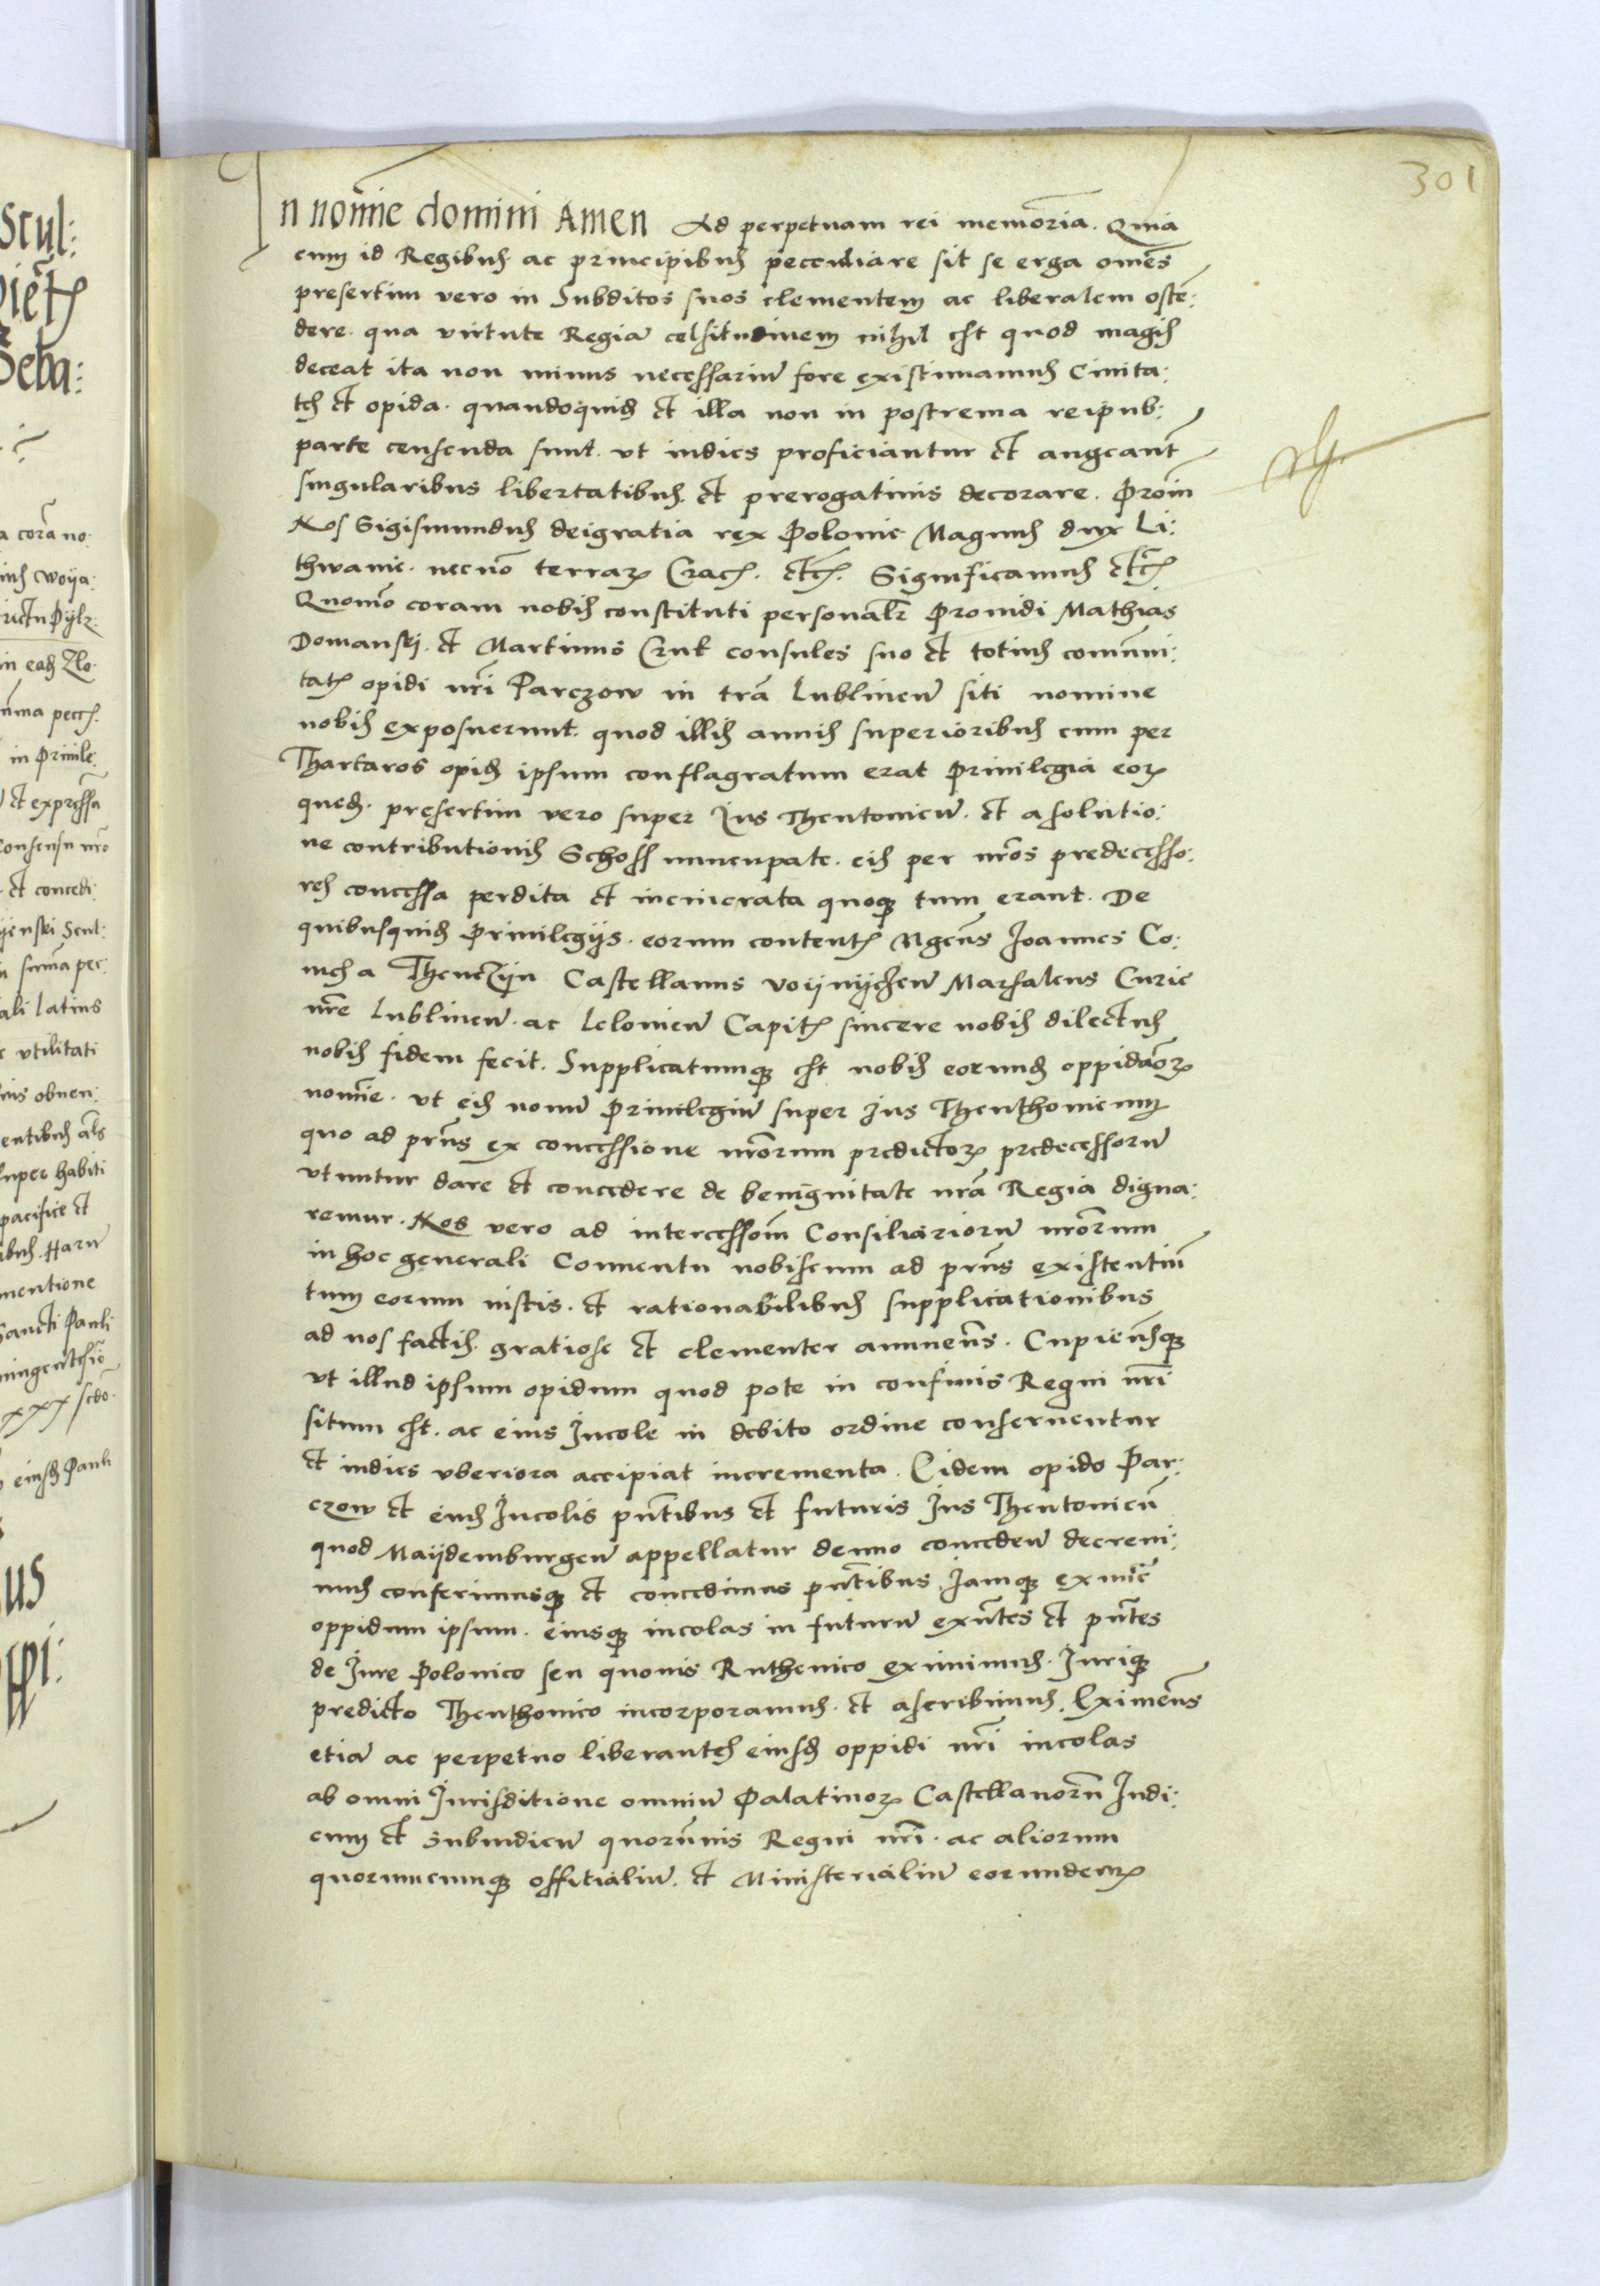 301
In nomĩe domini Amen Ad perpetuam rei memoriã. Quia
cum id Regibus ac principibus pecculiare sit se erga omẽs
presertim vero in Subditos suos clementem ac liberalem ostẽ:
dere. qua virtute Regiã celsitudinem nihil est quod magis
deceat ita non minus necessariũ fore existimamus Civita:
tes et opida. quandoquid et illa non in postrema reipub:
parte censenda sunt. vt indies proficiantur et augeant̃
singularibus libertatibus et prerogativis decorare. Proin
Nos Sigismundus dei gratia rex Polonie Magnus dux Li:
thwanie. necnõ terrarꝫ Crac. etc. Significamus etc
Quomõ coram nobis constituti personalr̃ Providi Mathias
Domansky. et Martinus Crut consules suo et totius comuni:
tatis opidi nr̃i Parczow in tr̃a Lublineñ siti nomine
nobis exposuerunt. quod illis annis superioribus cum per
Thartaros opid ipsum conflagratum erat Privilegia eorꝫ
qued. presertim vero super Ius Theutonicũ. et a solutio:
ne contributionis Schoss nuncupate. eis per nr̃os predecesso:
res concessa perdita et incinerata quoqꝫ tum erant. De
quibusquid Privilegijs. eorum contentis Mgcus Joannes Co:
mes a Thenczijn Castellanus voijnijcꝫeñ Marsalcus Curie
nr̃e Lublineñ. ac Lelovieñ Capitꝫ sincere nobis dilectus
nobis fidem fecit. Supplicatumqꝫ est nobis eorund oppidanorꝫ
nomĩe. vt eis novũ Privilegiũ super Ius Thenthonicum
quo ad pr̃ns ex concessione nr̃orum predictorꝫ predecessorũ
vtuntur dare et concedere de benignitate nr̃a Regia digna:
remur. Nos vero ad intercessiom Consiliariorũ nr̃orum
in hoc generali Conventu nobiscum ad pr̃ns existentiũ
tum eorum iustis. et rationabilibus supplicationibus
ad nos factis. gratiose et clementer annuẽns. Cupiẽnsqꝫ
vt illud ipsum opidum quod pote in confinis Regni nr̃i
situm est. ac eius Incole in debito ordine conserventur
et indies vberiora accipiat incrementa. Eidem opido Par:
czow et eius Incolis pñtibus et futuris Ius Theutonicũ
quod Maijdemburgeñ appellatur denuo concedeñ decrevi:
mus conferimusqꝫ et concedimus pñtibus. Iamqꝫ ex nũc
oppidum ipsum. eiusqꝫ incolas in futurũ exñtes et pñtes
de Iure Polonico seu quovis Ruthenico eximimus. Iuriqꝫ
predicto Thenthonico incorporamus. et ascribimus. Eximẽns
etiã ac perpetuo liberantes eiusd oppidi nr̃i incolas
ab omni Iurisditione omniũ Palatinorꝫ Castellanorũ Iudi:
cum et subiudicũ quorũvis Regni nr̃i. ac aliorum
quorumcumqꝫ offitialiũ. et Ministerialiũ eorundem